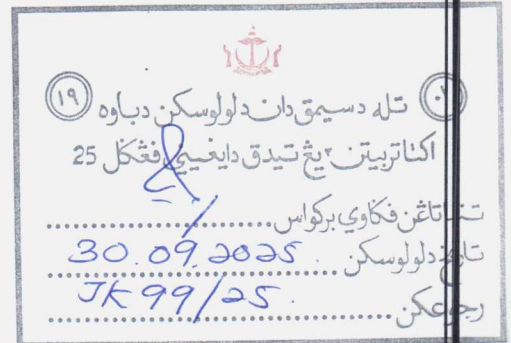 تله دسيمق دان دلولوسكن دباوه
١٩
اکتا تربيتن٢ يڠ تيدق دايڠيني ڤڠݢل 25
تندا تاڠن ڤݢاوي برکواس
تاريخ دلولوسكن 30.09.2025
رجوعكن JK 99/25